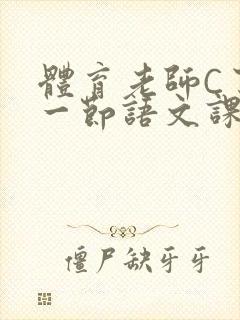 體育老師C
一節語文課
僵尸缺牙牙